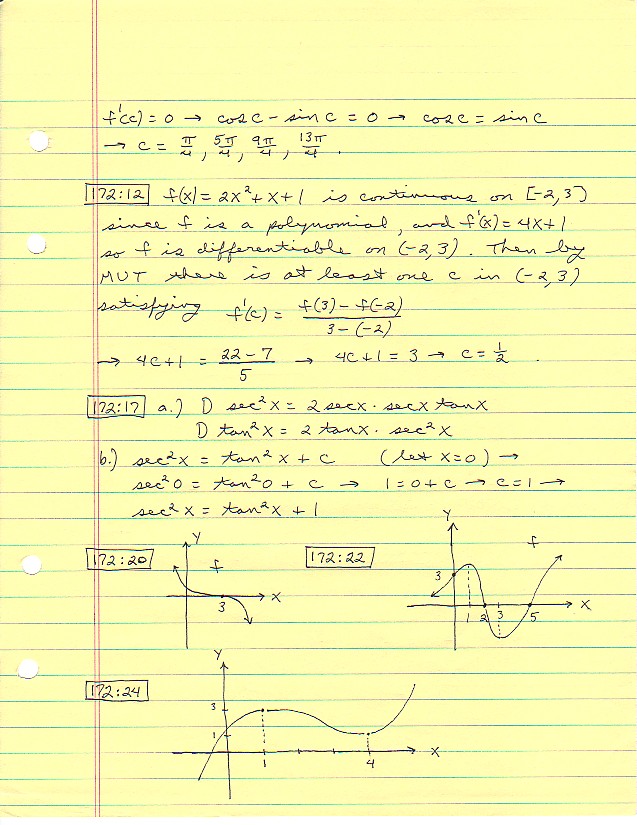 f'(c) = 0 → cos c - sin c = 0 → cos c = sin c
→ c = π/4, 5π/4, 9π/4, 13π/4.
172:12 f(x) = 2x² + x + 1 is continuous on [-2,3]
since f is a polynomial, and f'(x) = 4x+1
so f is differentiable on (-2,3). Then by
MVT there is at least one c in (-2,3)
satisfying f'(c) = (f(3) - f(-2))/(3-(-2))
→ 4c+1 = (22-7)/5 → 4c+1 = 3 → c = 1/2.
172:17 a.) D sec²x = 2 secx · secx tanx
D tan²x = 2 tanx · sec²x
b.) sec²x = tan²x + c (let x=0) →
sec²0 = tan²0 + c → 1 = 0 + c → c = 1 →
sec²x = tan²x + 1
172:20 Y f 3 X
172:22 Y f 3 1 2 3 5 X
172:24 Y 3 1 1 4 X